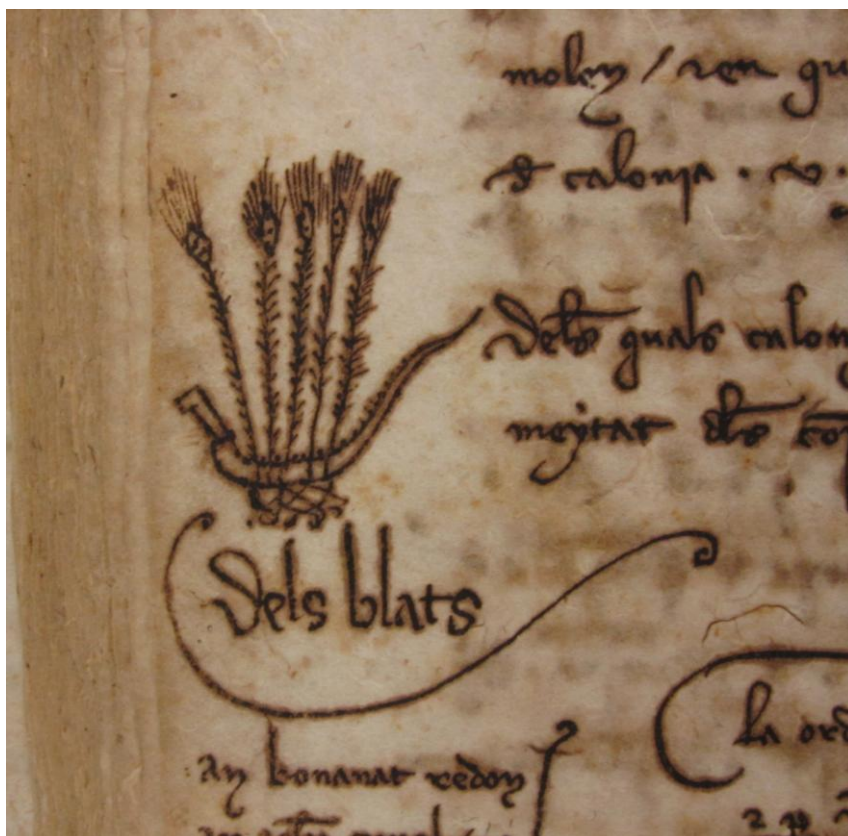 moley / ren qu
đ calonia · v ·
Dels quals calon
meytat dls co
dels blats
la ord
An bonanat redon